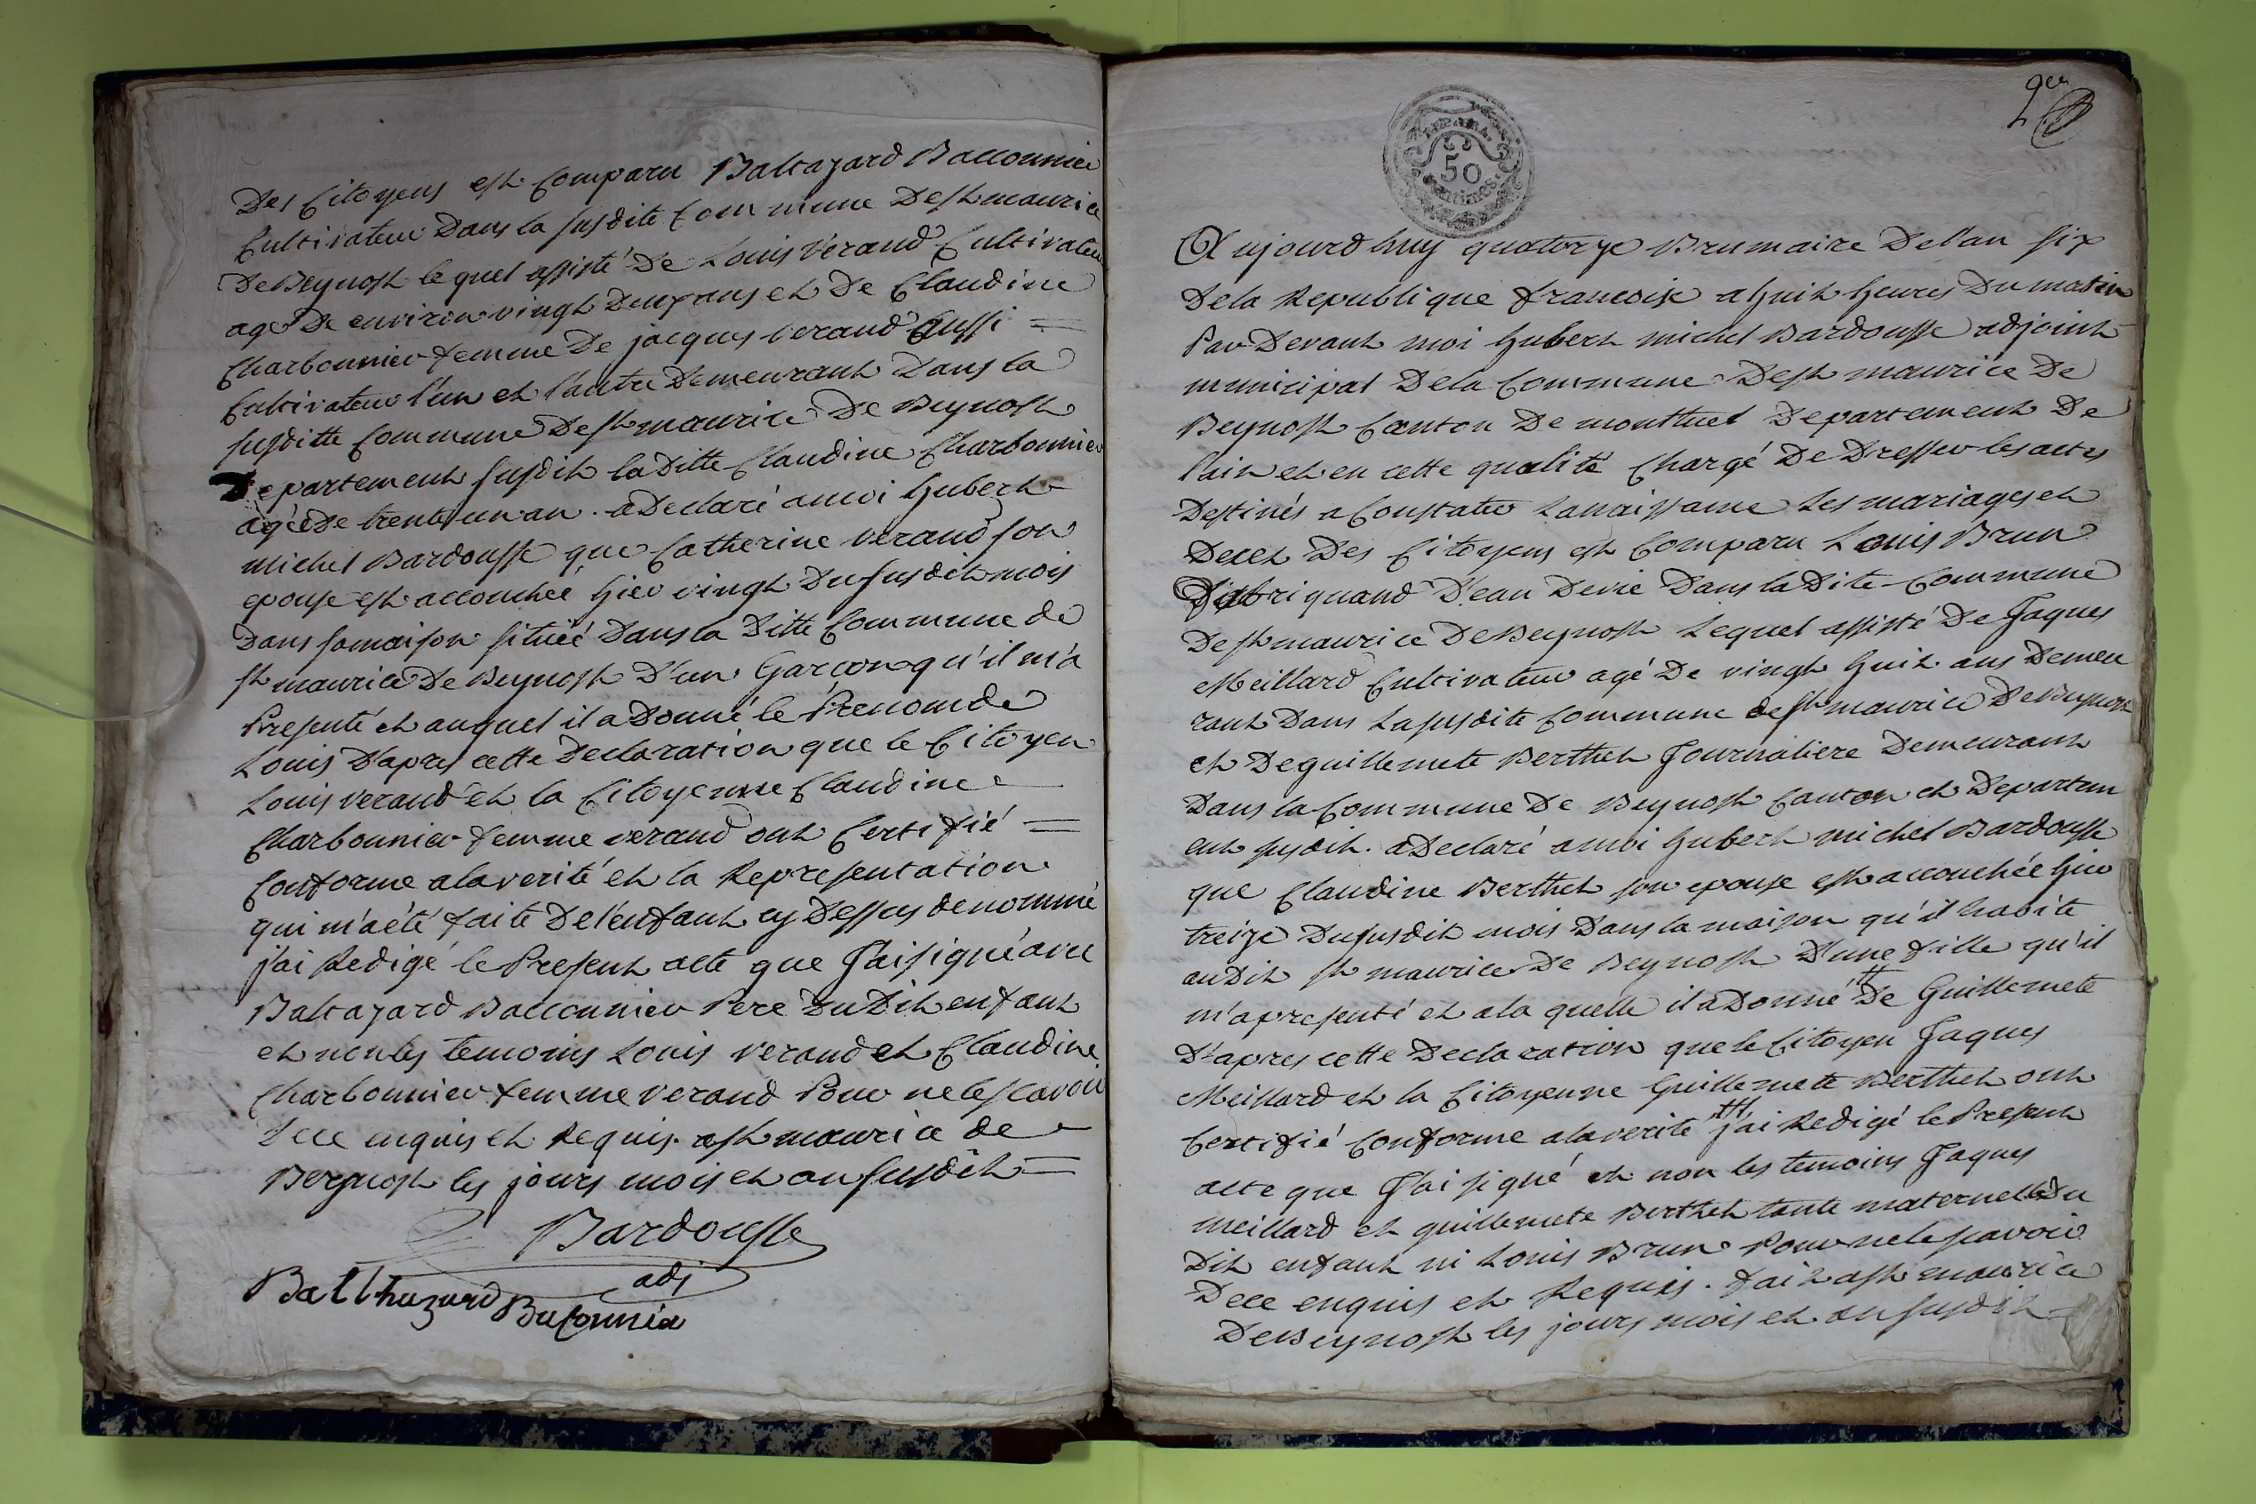 Des Citoyens est Comparu Baltazard Bacconnier
Cultivateur Dans la susdite Commune De st maurice
De Beynost le quel assisté De Louis Verand Cultivateur
age De environ vingt Deux ans et De Claudine
Charbonnier femme De jacques verand Aussi =
Cultivateur l'un et l'autre Demeurant Dans la
susditte Commune De st maurice De Beynost
Departement susdit la Ditte Claudine Charbonnier
agée De trente un an . a Declaré a moi hubert
michel Bardousse que Catherine verand son
epouse est accouchée hier vingt Du susdit mois
Dans sa maison située Dans la Ditte Commune de
st maurice De Beynost D'un Garcon qu'il m'a
Presenté et auquel il a Donné le Prenom de
Louis D'apres cette Declaration que le Citoyen
Louis verand et la Citoyenne Claudine
Charbonnier femme verand ont Certifié =
Conforme a la verité et la Representation
qui m'a été faite De l'enfant cy Dessus denommé
j'ai Redigé le Present acte que J'ai signé avec
Baltazard Bacconnier Pere Du Dit enfant
et non les temoins Louis verand et Claudine
Charbonnier femme Verand Pour ne le scavoir
De ce enquis et Requis. a st maurice de
Beynost les jours mois et an susdit =
Bardousse
adj
Balthazard Baconnier
2er
50
Centimes.
Aujourdhuy quatorze Brumaire De l'an six
De la Republique francoise a huit heures Du matin
Par Devant moi hubert michel Bardousse adjoint
municipal De la Commune De st maurice De
Beynost Canton De montluel Departement De
l'ain et en cette qualité Chargé De Dresser les actes
Destinés a Constater la naissance Les mariages et
Decet Des Citoyens est Comparu Louis Brun
fabriquand D'eau Devie Dans la Dite Commune
De st maurice De Beynost Lequel assisté De Jaques
Meillard Cultivateur agé De vingt huit ans Demeu
rant Dans la susdite Commune de st maurice De Beynost
et De guillemete Berthet Journaliere Demeurant
Dans la Commune De Beynost Canton et Departem
ent susdit . a Declaré a moi hubert michel Bardousse
que Claudine Berthet son epouse est accouchée hier
treize Du susdit mois Dans la maison qu'il habite
au Dit st maurice De Beynost D'une fille qu'il
m'a presenté et a la quelle il a Donné # De Guillemete
D'apres cette Declaration que le Citoyen Jaques
Meillard et la Citoyenne Guillemete Berthet ont
Certifié Conforme a la verité j'ai Redigé le Present
acte que J'ai signé et non les temoins Jaques
meillard et guillemete Berthet tante maternelle Du
Dit enfant ni Louis Brun Pour ne le scavoir
De ce enquis et Requis . fait a st maurice
De Beynost les jours mois et an susdit